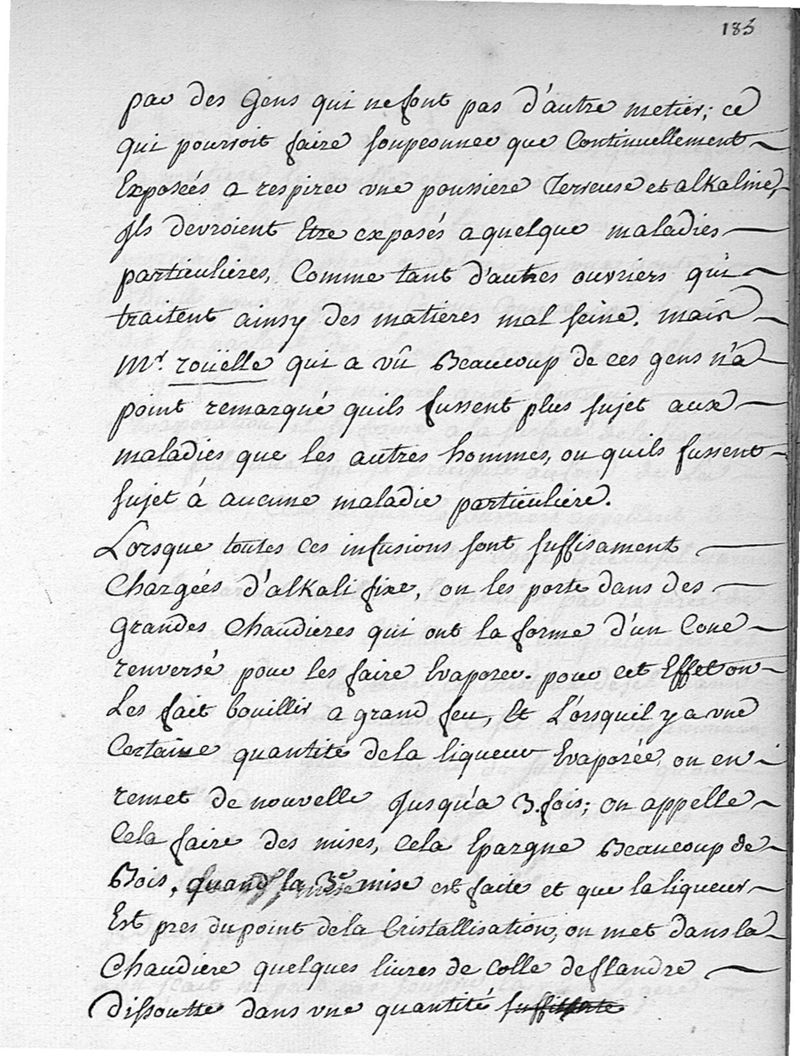 183
par des Gens qui ne font pas d'autre metier; ce
qui pourroit faire soupesonner que Continuellement
Exposés a respirer une poussiere Terreuse et alkaline,
Ils devroient Etre exposés a quelque maladies
particulieres, Comme tant d'autres ouvriers qui
traitent ainsy des matieres mal seine. mais
Mr. roüelle qui a vû Beaucoup de ces gens n'a
point remarqué quils fussent plus sujet aux
maladies que les autres hommes, ou quils fussent
sujet à aucune maladie particuliere.
Lorsque toutes ces infusions sont suffisament
Chargées d'alkali fixe, on les porte dans des
Grandes Chaudieres qui ont la forme d'un Cone
renversé pour les faire Evaporer. pour cet Effet on
Les fait bouillir a grand feu, Et Lorsquil y a une
Certaine quantité de la liqueur Evaporée, on en
remet de nouvelle Jusqu'a 3. fois; on appelle
Cela faire des mises, Cela Epargne Beaucoup de
Bois, quand la 3e mise est faite et que la liqueur
Est pres du point de la Cristallisation, on met dans la
Chaudiere quelques livres de Colle de flandre
dissoutte dans une quantité